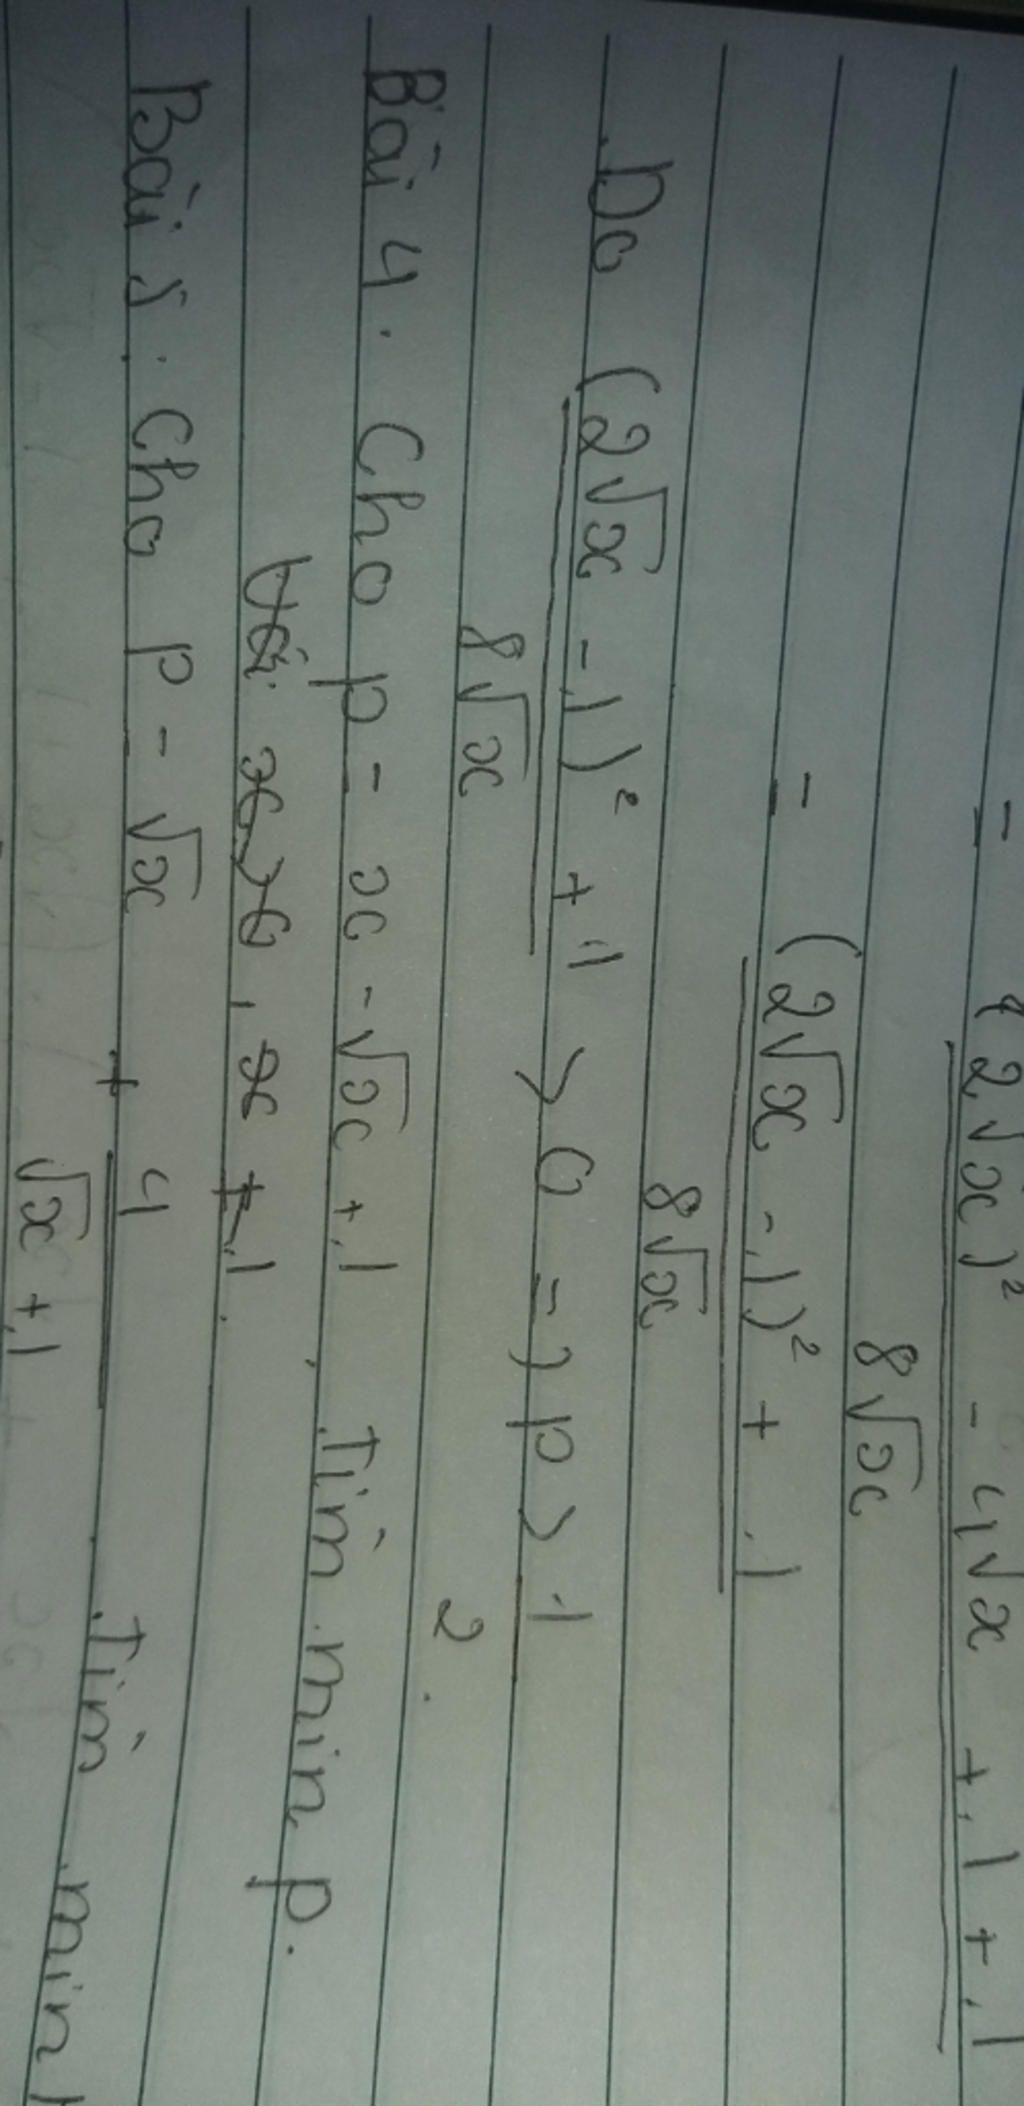 = (2√x)² - 4√x + 1 + 1
8√x
= (2√x - 1)² + 1
8√x
Do (2√x - 1)² + 1 > 0 => p > 1
8√x 2
Bài 4. Cho p = x - √x + 1 Tìm min p.
Với x > 0, x ≠ 1.
Bài 5. Cho p = √x + 4 Tìm min
√x + 1